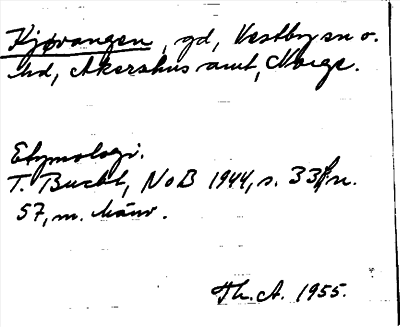 Kjøvangen, gd, Vestby sn o.
hd, Akershus amt, Norge.
Etymologi.
T. Bucht, NoB 1944, s. 33 n.
57, m. hänv.
Th. A. 1955.